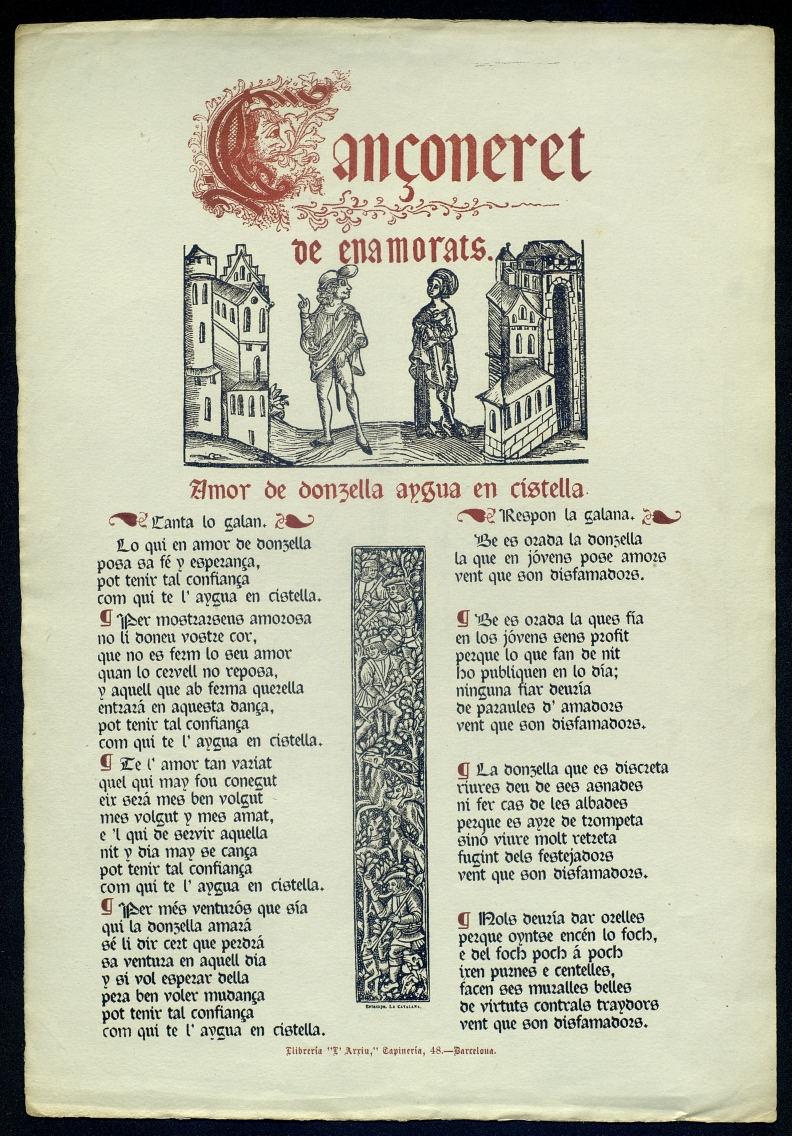 Cançoneret
de enamorats.
Amor de donzella aygua en cistella.
Canta lo galan.
Lo qui en amor de donzella
posa sa fé y esperança,
pot tenir tal confiança
com qui te l' aygua en cistella.
¶ Per mostrarseus amorosa
no li doneu vostre cor,
que no es ferm lo seu amor
quan lo cervell no reposa,
y aquell que ab ferma querella
entrará en aquesta dança,
pot tenir tal confiança
com qui te l' aygua en cistella.
¶ Te l' amor tan variat
quel qui may fou conegut
eix será mes ben volgut
mes volgut y mes amat,
e 'l qui de servir aquella
nit y dia may se cança
pot tenir tal confiança
com qui te l' aygua en cistella.
¶ Per més venturós que sía
qui la donzella amará
sé li dir cert que perdrá
sa ventura en aquell dia
y si vol esperar della
pera ben voler mudança
pot tenir tal confiança
com qui te l' aygua en cistella.
Respon la galana.
Be es orada la donzella
la que en jóvens pose amors
vent que son disfamadors.
¶ Be es orada la ques fía
en los jóvens sens profit
perque lo que fan de nit
ho publiquen en lo día;
ninguna fiar deuría
de paraules d' amadors
vent que son disfamadors.
¶ La donzella que es discreta
riures deu de ses asnades
ni fer cas de les albades
perque es ayre de trompeta
sinó viure molt retreta
fugint dels festejadors
vent que son disfamadors.
¶ Nols deuría dar orelles
perque oyntse encén lo foch,
e del foch poch á poch
ixen purnes e centelles,
facen ses muralles belles
de virtuts contrals traydors
vent que son disfamadors.
Estampa. La Catalana.
Llibrería "L' Arxiu," Tapinería, 48.—Barcelona.